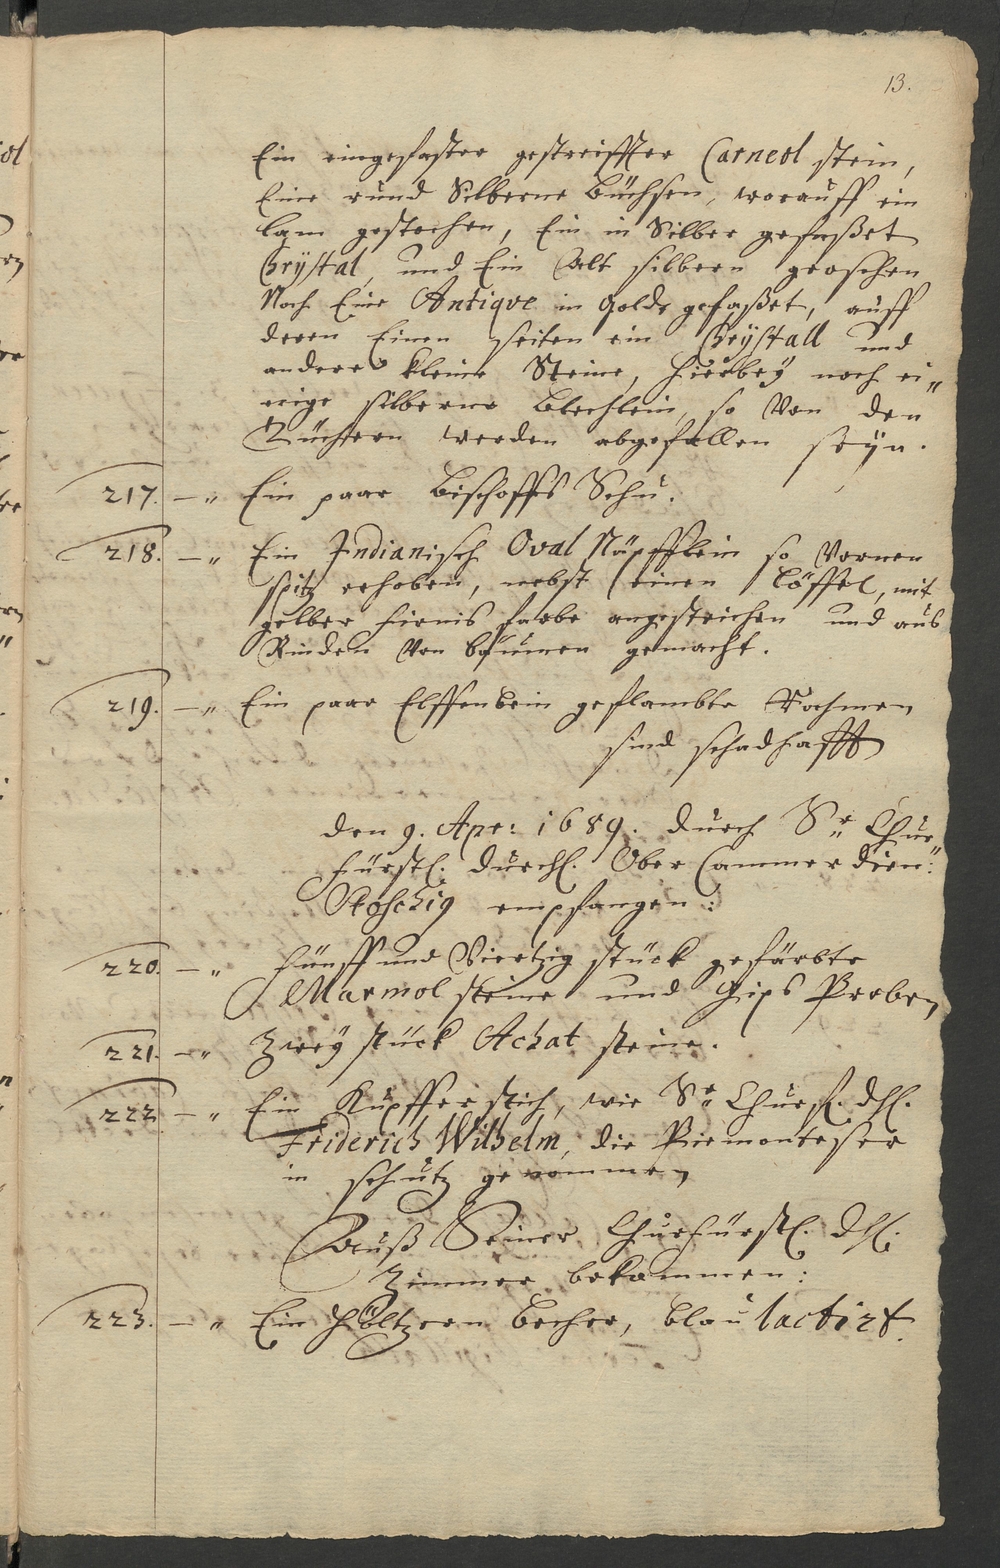 13.
Ein eingefaster gestreiffter Carneol stein,
Eine rund Silberne Büchsen, worauff ein
Lam gestochen, Ein in Silber gefaßet
Crystal, und Ein alt silbern groschen
Noch Eine Antique in Golde gefaßet, auff
deren Einen seiten ein Crystall und
andere kleine Steine, hierbey noch ei„
nige silberne Blechlein, so Von den
Tüchern werden abgefallen seyn.
217. —„ Ein paar Bischoffs Schu.
218. —„ Ein Indianisch Oval Näpfflein so Vornen
spitz erhoben, nebst einen Löffel, mit
gelber firnis farbe angestrichen und aus
Rinden Von bäumen gemacht.
219. —„ Ein paar Elffenbein geflambte Rahmen
sind schadhafft
den 9. Apr: 1689. durch Sr Chur„
fürstl. Durchl. Ober Cammerdien:
Stoschig empfangen:
220. —„ Fünff und Viertzig stück gefärbte
Marmol steine und Gips Proben
221. —„ Zwey stück Achat steine.
222. —„ Ein Kupfferstich, wie Sr Churf. dhl.
Friderich Wilhelm, die Piemonteser
in schutz genommen
Auß Seiner Churfürstl. dhl.
Zimmer bekommen:
223. —„ Ein höltzern Becher, blau lactirt.